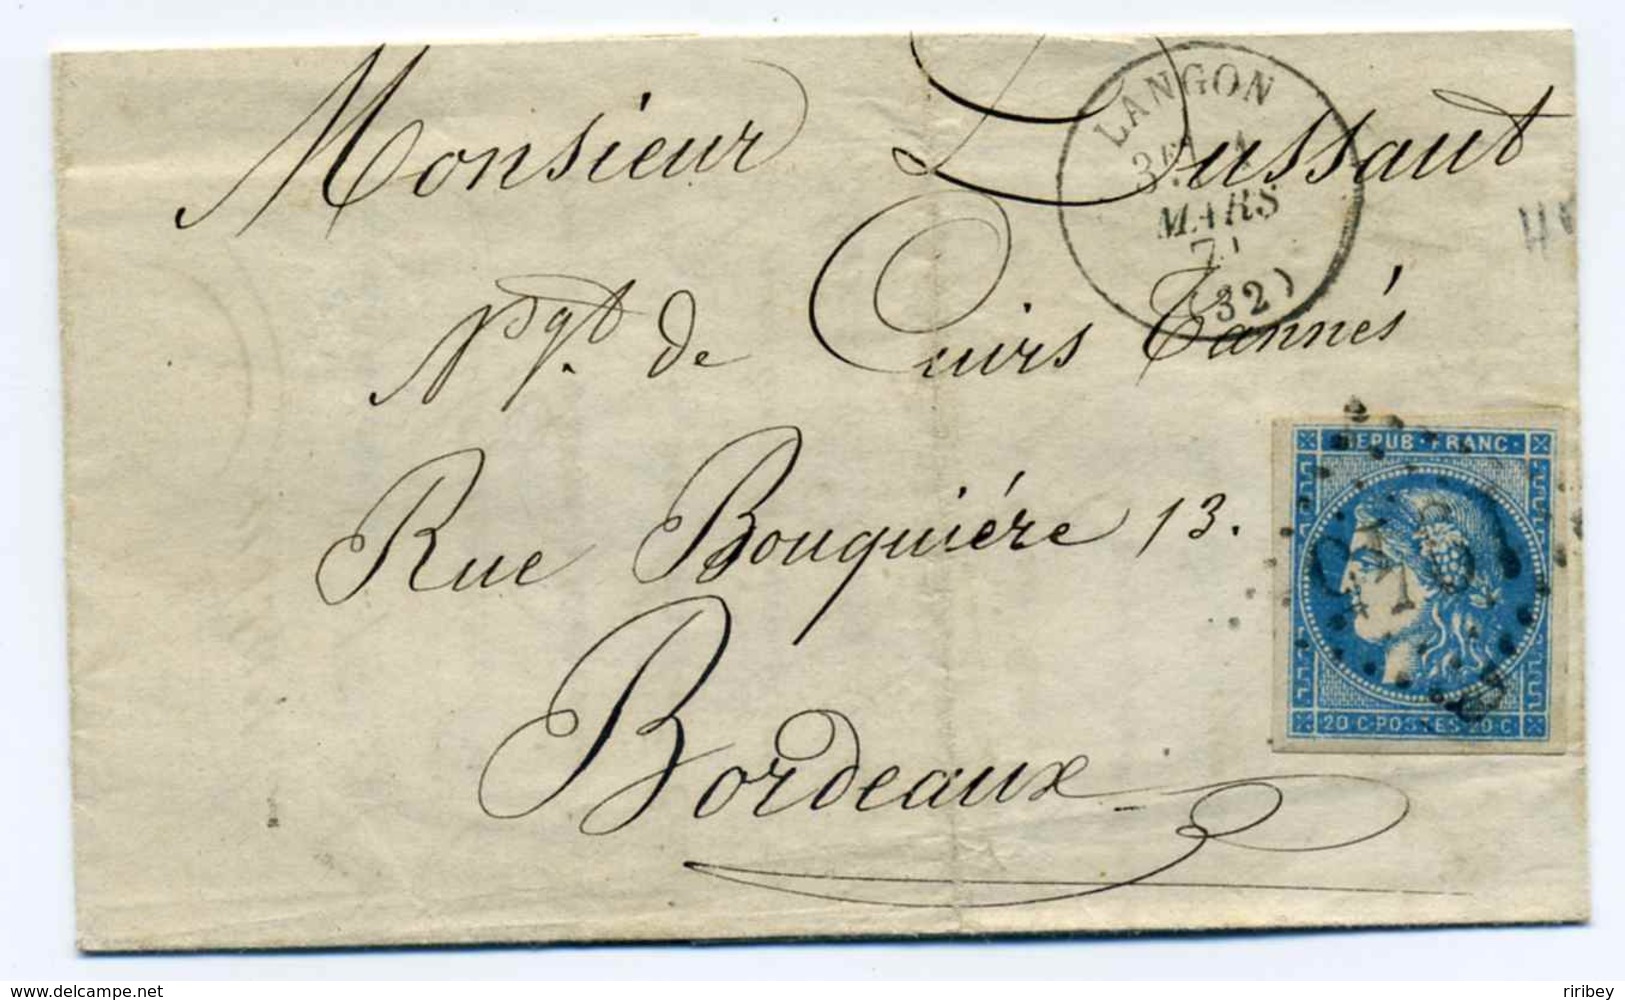 Monsieur Lussaut
LANGON
3E
MARS
71
(32)
Ngt. de Cuirs Tannés
Rue Bouquiére 13.
Bordeaux
REPUB·FRANC·
20 C·POSTES·20 C
delcampe.net
riribey